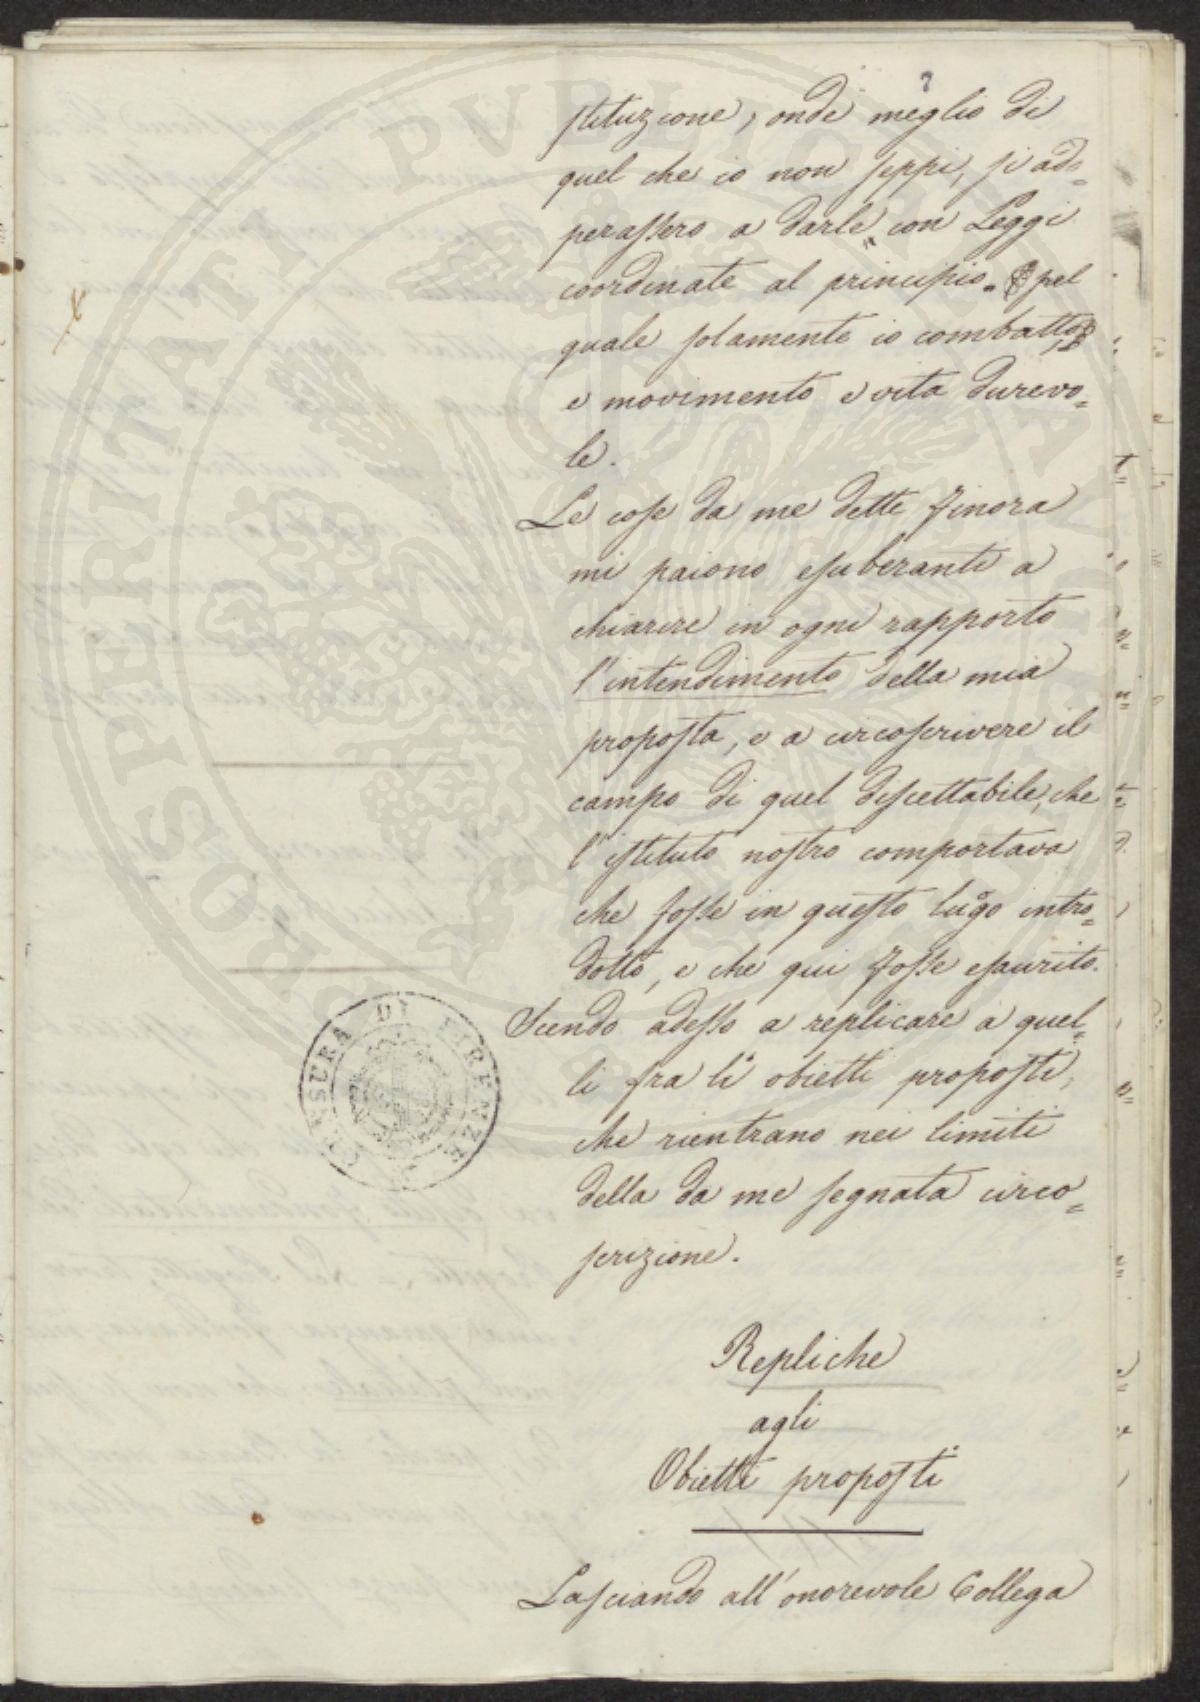 stituzione, onde meglio di
quel che io non seppi, si ado=
perassero a darle, con Leggi
coordinate al principio pel
quale solamente io combatto,
e movimento e vita durevo=
le.
Le cose da me dette finora
mi paiono esuberanti a
chiarire in ogni rapporto
l'intendimento della mia
proposta, e a circoscrivere il
campo di quel discettabile, che
l'istituto nostro comportava
che fosse in questo luogo intro=
dotto, e che qui fosse esaurito.
Scendo adesso a replicare a quel=
li fra li obietti proposti,
che rientrano nei limiti
della da me segnata circo=
scrizione.
Repliche
agli
Obietti proposti
Lasciando all'onorevole Collega
CENSURA DI FIRENZE
PROSPERITATI PVBLICAE